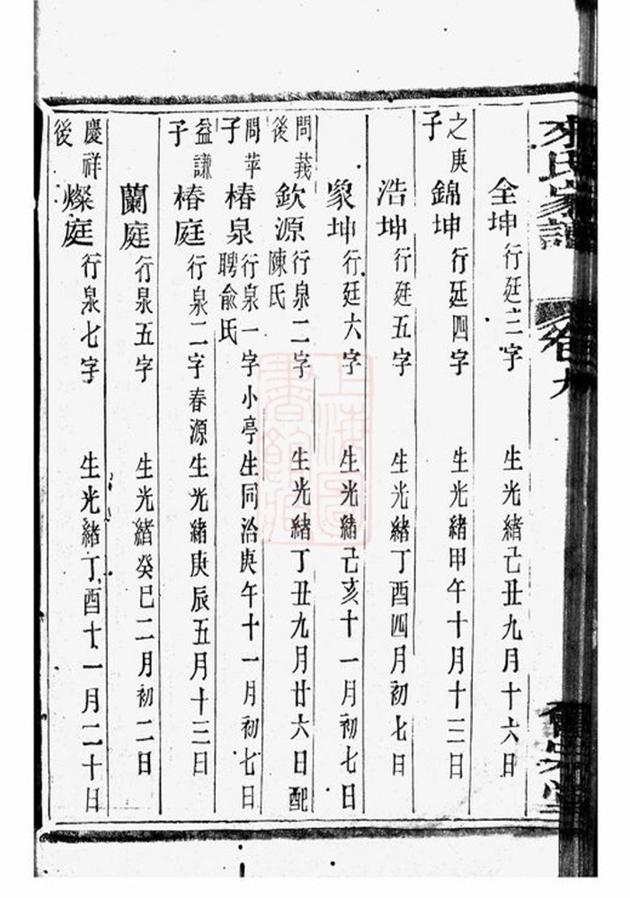 氏家譜 卷九
全坤 行廷三字 生光緒己丑九月十六日
之庚子 錦坤 行廷四字 生光緒甲午十月十三日
浩坤 行廷五字 生光緒丁酉四月初七日
象坤 行廷六字 生光緒己亥十一月初七日
問義後 欽源 行泉二字 生光緒丁丑九月廿六日配陳氏
問莘子 椿泉 行泉一字小亭生同治庚午十一月初七日聘俞氏
益謙子 椿庭 行泉二字春源生光緒庚辰五月十三日
蘭庭 行泉五字 生光緒癸巳二月初二日
慶祥後 燦庭 行泉七字 生光緒丁酉十一月二十日
上海圖書館藏